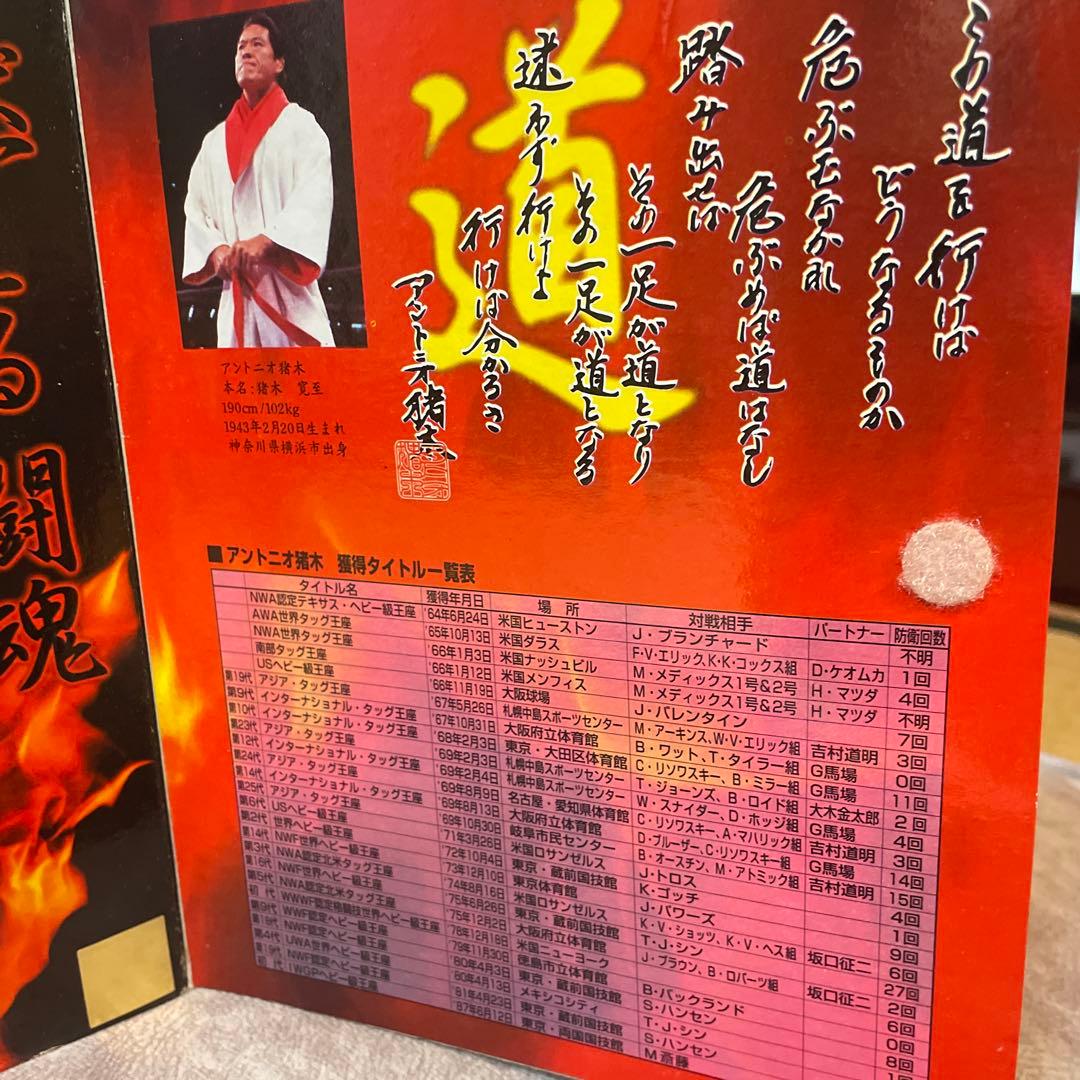 この道を行けば
どうなるものか
危ぶむなかれ
危ぶめば道はなし
踏み出せば
その一足が道となり
その一足が道となる
迷わず行けよ
行けば分かるさ
アントニオ猪木
道
闘魂
アントニオ猪木
本名:猪木 寛至
190cm/102kg
1943年2月20日生まれ
神奈川県横浜市出身
■アントニオ猪木 獲得タイトル一覧表
タイトル名 獲得年月日 場所 対戦相手 パートナー 防衛回数
NWA認定テキサス・ヘビー級王座 '64年6月24日 米国ヒューストン J・ブランチャード 不明
AWA世界タッグ王座 '65年10月13日 米国ダラス F・V・エリック、K・K・コックス組 D・ケオムカ 1回
NWA世界タッグ王座 '66年1月3日 米国ナッシュビル M・メディックス1号&2号 H・マツダ 4回
南部タッグ王座 '66年1月12日 米国メンフィス M・メディックス1号&2号 H・マツダ 不明
USヘビー級王座 '66年11月19日 大阪球場 J・バレンタイン 7回
第19代 アジア・タッグ王座 '67年5月26日 札幌中島スポーツセンター M・アーキンス、W・V・エリック組 吉村道明 3回
第9代 インターナショナル・タッグ王座 '67年10月31日 大阪府立体育館 B・ワット、T・タイラー組 G馬場 0回
第10代 インターナショナル・タッグ王座 '68年2月3日 東京・大田区体育館 C・リソワスキー、B・ミラー組 G馬場 11回
第23代 アジア・タッグ王座 '69年2月3日 札幌中島スポーツセンター T・ジョーンズ、B・ロイド組 大木金太郎 2回
第12代 インターナショナル・タッグ王座 '69年2月4日 札幌中島スポーツセンター W・スナイダー、D・ホッジ組 G馬場 4回
第24代 アジア・タッグ王座 '69年8月9日 名古屋・愛知県体育館 C・リソワスキー、A・マハリック組 吉村道明 3回
第14代 インターナショナル・タッグ王座 '69年8月13日 大阪府立体育館 D・ブルーザー、C・リソワスキー組 G馬場 14回
第25代 アジア・タッグ王座 '69年10月30日 岐阜市民センター B・オースチン、M・アトミック組 吉村道明 15回
第6代 USヘビー級王座 '71年3月26日 米国ロサンゼルス J・トロス 4回
第2代 世界ヘビー級王座 '72年10月4日 東京・蔵前国技館 K・ゴッチ 1回
第14代 NWF世界ヘビー級王座 '73年12月10日 東京体育館 J・パワーズ 9回
第3代 NWA認定北米タッグ王座 '74年8月16日 米国ロサンゼルス K・V・ショッツ、K・V・ヘス組 坂口征二 6回
第16代 NWF世界ヘビー級王座 '75年6月26日 東京・蔵前国技館 T・J・シン 27回
第5代 NWA認定北米タッグ王座 '75年12月2日 大阪府立体育館 J・ブラウン、B・ロバーツ組 坂口征二 2回
初代 WWWF認定格闘技世界ヘビー級王座 '78年12月18日 米国ニューヨーク 6回
第9代 WWF認定ヘビー級王座 '79年11月30日 徳島市立体育館 B・バックランド 0回
第18代 NWF認定ヘビー級王座 '80年4月3日 東京・蔵前国技館 S・ハンセン 8回
第4代 UWA世界ヘビー級王座 '80年4月13日 メキシコシティ T・J・シン 1回
第19代 NWF認定ヘビー級王座 '81年4月23日 東京・蔵前国技館 S・ハンセン
初代 IWGPヘビー級王座 '87年6月12日 東京・両国国技館 M斎藤